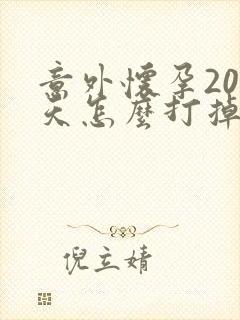 意外懷孕20
天怎麼打掉
倪立婧